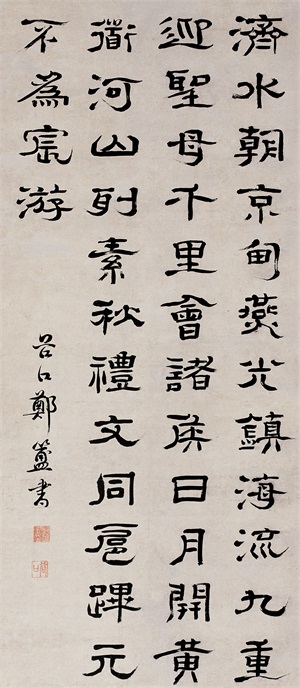 濟水朝京甸燕鎮海流九重
迎聖母千里會諸侯日月開黃
衟河山列素秋禮文同扈蹕元
不爲宦游
谷口鄭簠書